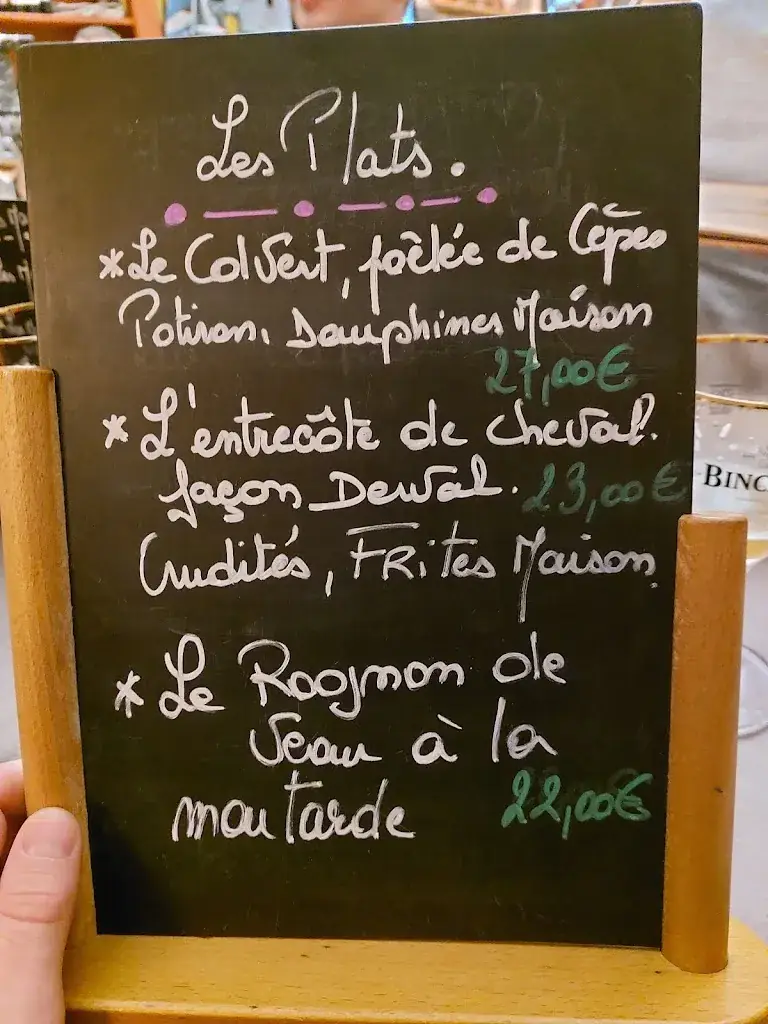 Les Plats.
*Le Colvert, poêlée de Cèpes
Potiron, Dauphines Maison
27,00€
* L'entrecôte de cheval.
façon Derval. 23,00€
Crudités, FRites Maison.
* Le Rognon de
Veau à la
moutarde 22,00€
BINC